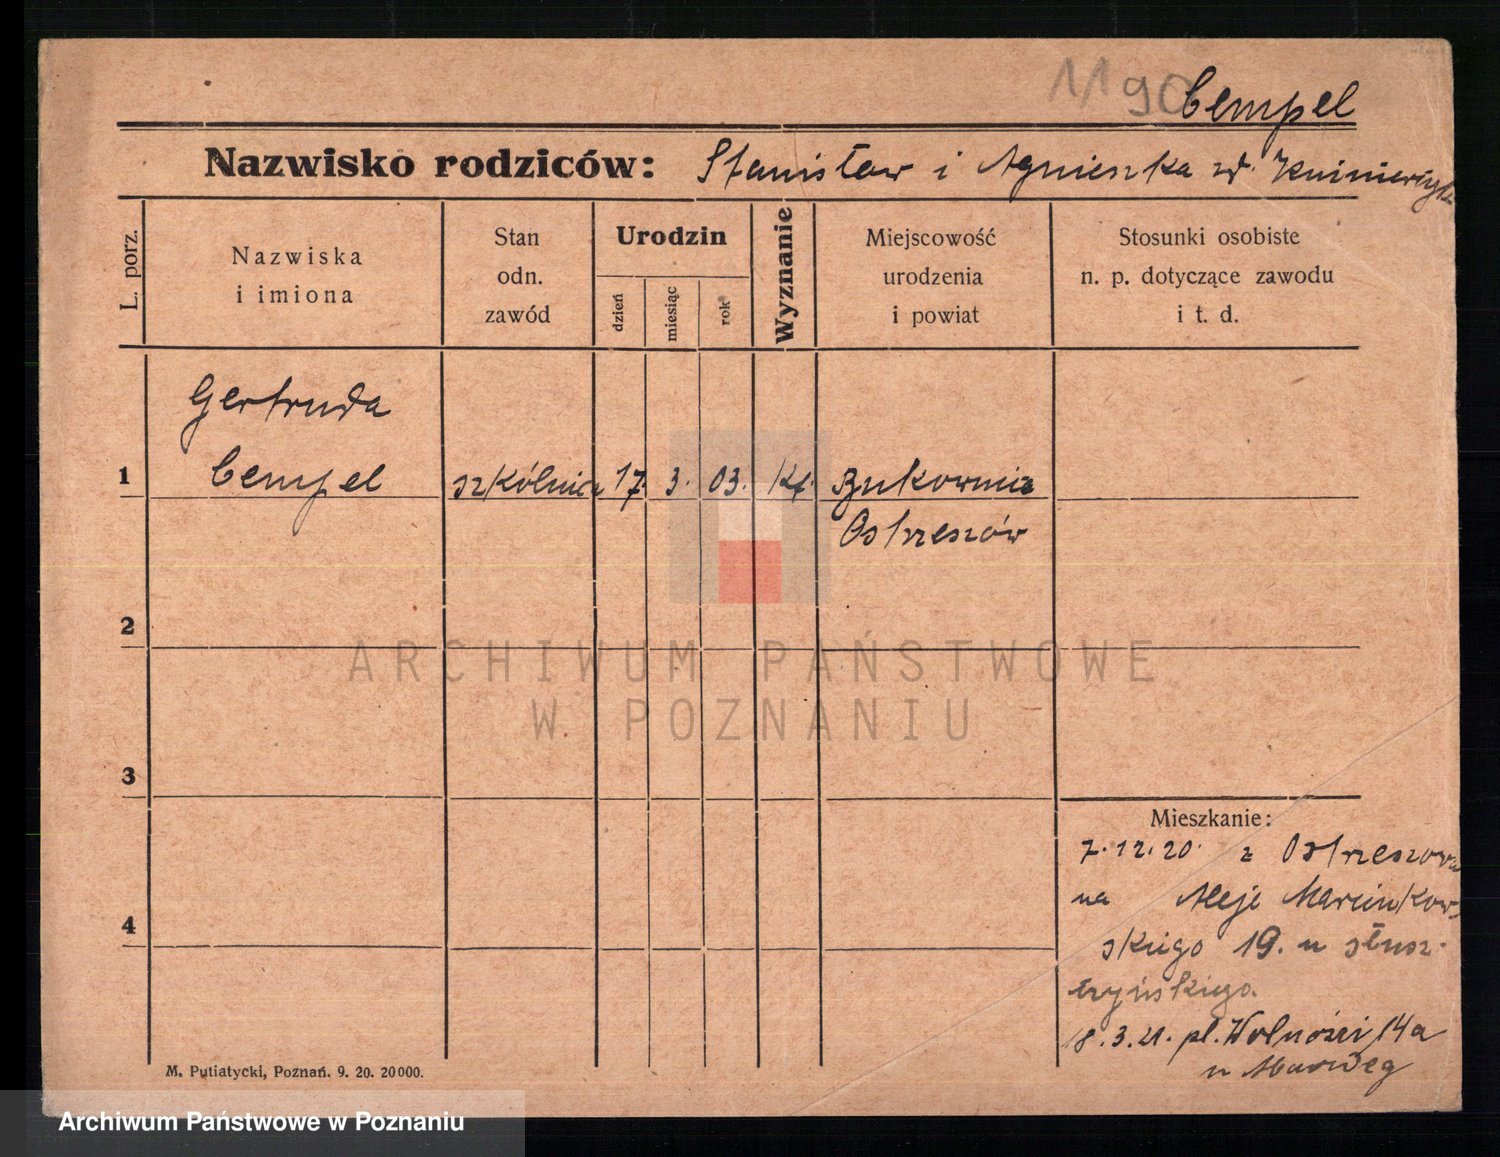 1190
Cempel
Nazwisko rodziców: Stanisław i Agnieszka zd.
L. porz.
Nazwiska
i imiona
Stan
odn.
zawód
Urodzin
dzień
miesiąc
rok
Wyznanie
Miejscowość
urodzenia
i powiat
Stosunki osobiste
n. p. dotyczące zawodu
i t. d.
Gertruda
1 Cempel szkólnica 17. 3. 03. kt. Bukownica
Ostrzeszów
2
ARCHIWUM PAŃSTWOWE
W POZNANIU
3
Mieszkanie:
7.12.20. z Ostrzeszowa
na Aleje Marcinkow-
skiego 19. u
18.3.21. pl. Wolności 14a
u
4
M. Putiatycki, Poznań. 9. 20. 20000.
Archiwum Państwowe w Poznaniu